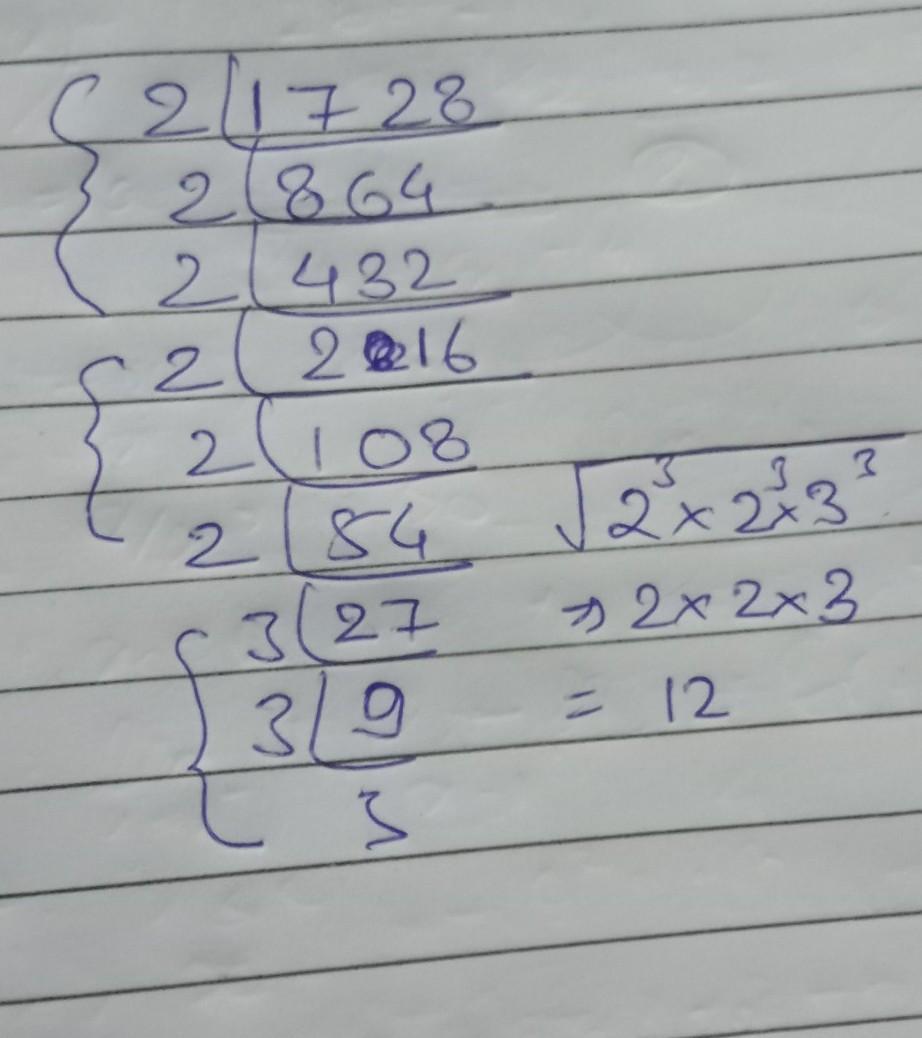 2 | 1728
2 | 864
2 | 432
2 | 216
2 | 108
2 | 54
3 | 27
3 | 9
3
√2³ × 2³ × 3³
⇒ 2 × 2 × 3
= 12